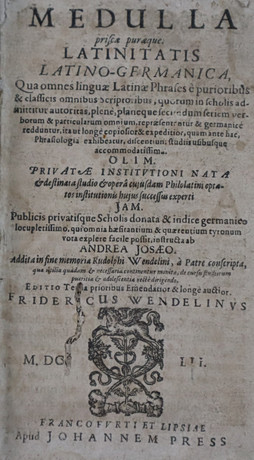 MEDULLA
priscæ puræque
LATINITATIS
LATINO-GERMANICA,
Qua omnes linguæ Latinæ Phrases è purioribus
& classicis omnibus Scriptoribus, quorum in scholis ad-
mittitur autoritas, plenè, planeque secundum seriem verborum
& particularum omnium, repræsentatur & germanicè
redduntur, ita ut longè copiosior & expeditior, quam ante hac,
Phrasiologia exhibeatur, discentium, studiis usibusque
accommodatissima.
OLIM.
PRIVATÆ INSTITVTIONI NATA
& destinata studio & operâ ejusdam Philolatini opta-
tos institutionis hujus successus experti
JAM.
Publicis privatisque Scholis donata & indice germanico
locupletissimo, qui omnia hæsitantium & quærentium tyronum
vota explere facilè possit, instructa ab
ANDREA JOSÆO.
Addita in fine memoria Rudolphi Wendelini, à Patre conscripta,
qua
necessaria continentur monita, de cursu
pueritiæ & adolescentiæ rectè dirigendo.
EDITIO prioribus Emendatior & longè auctior.
FRIDERICUS WENDELINVS
M. DC III.
FRANCOFVRTI ET LIPSIAE
Apud JOHANNEM PRESS